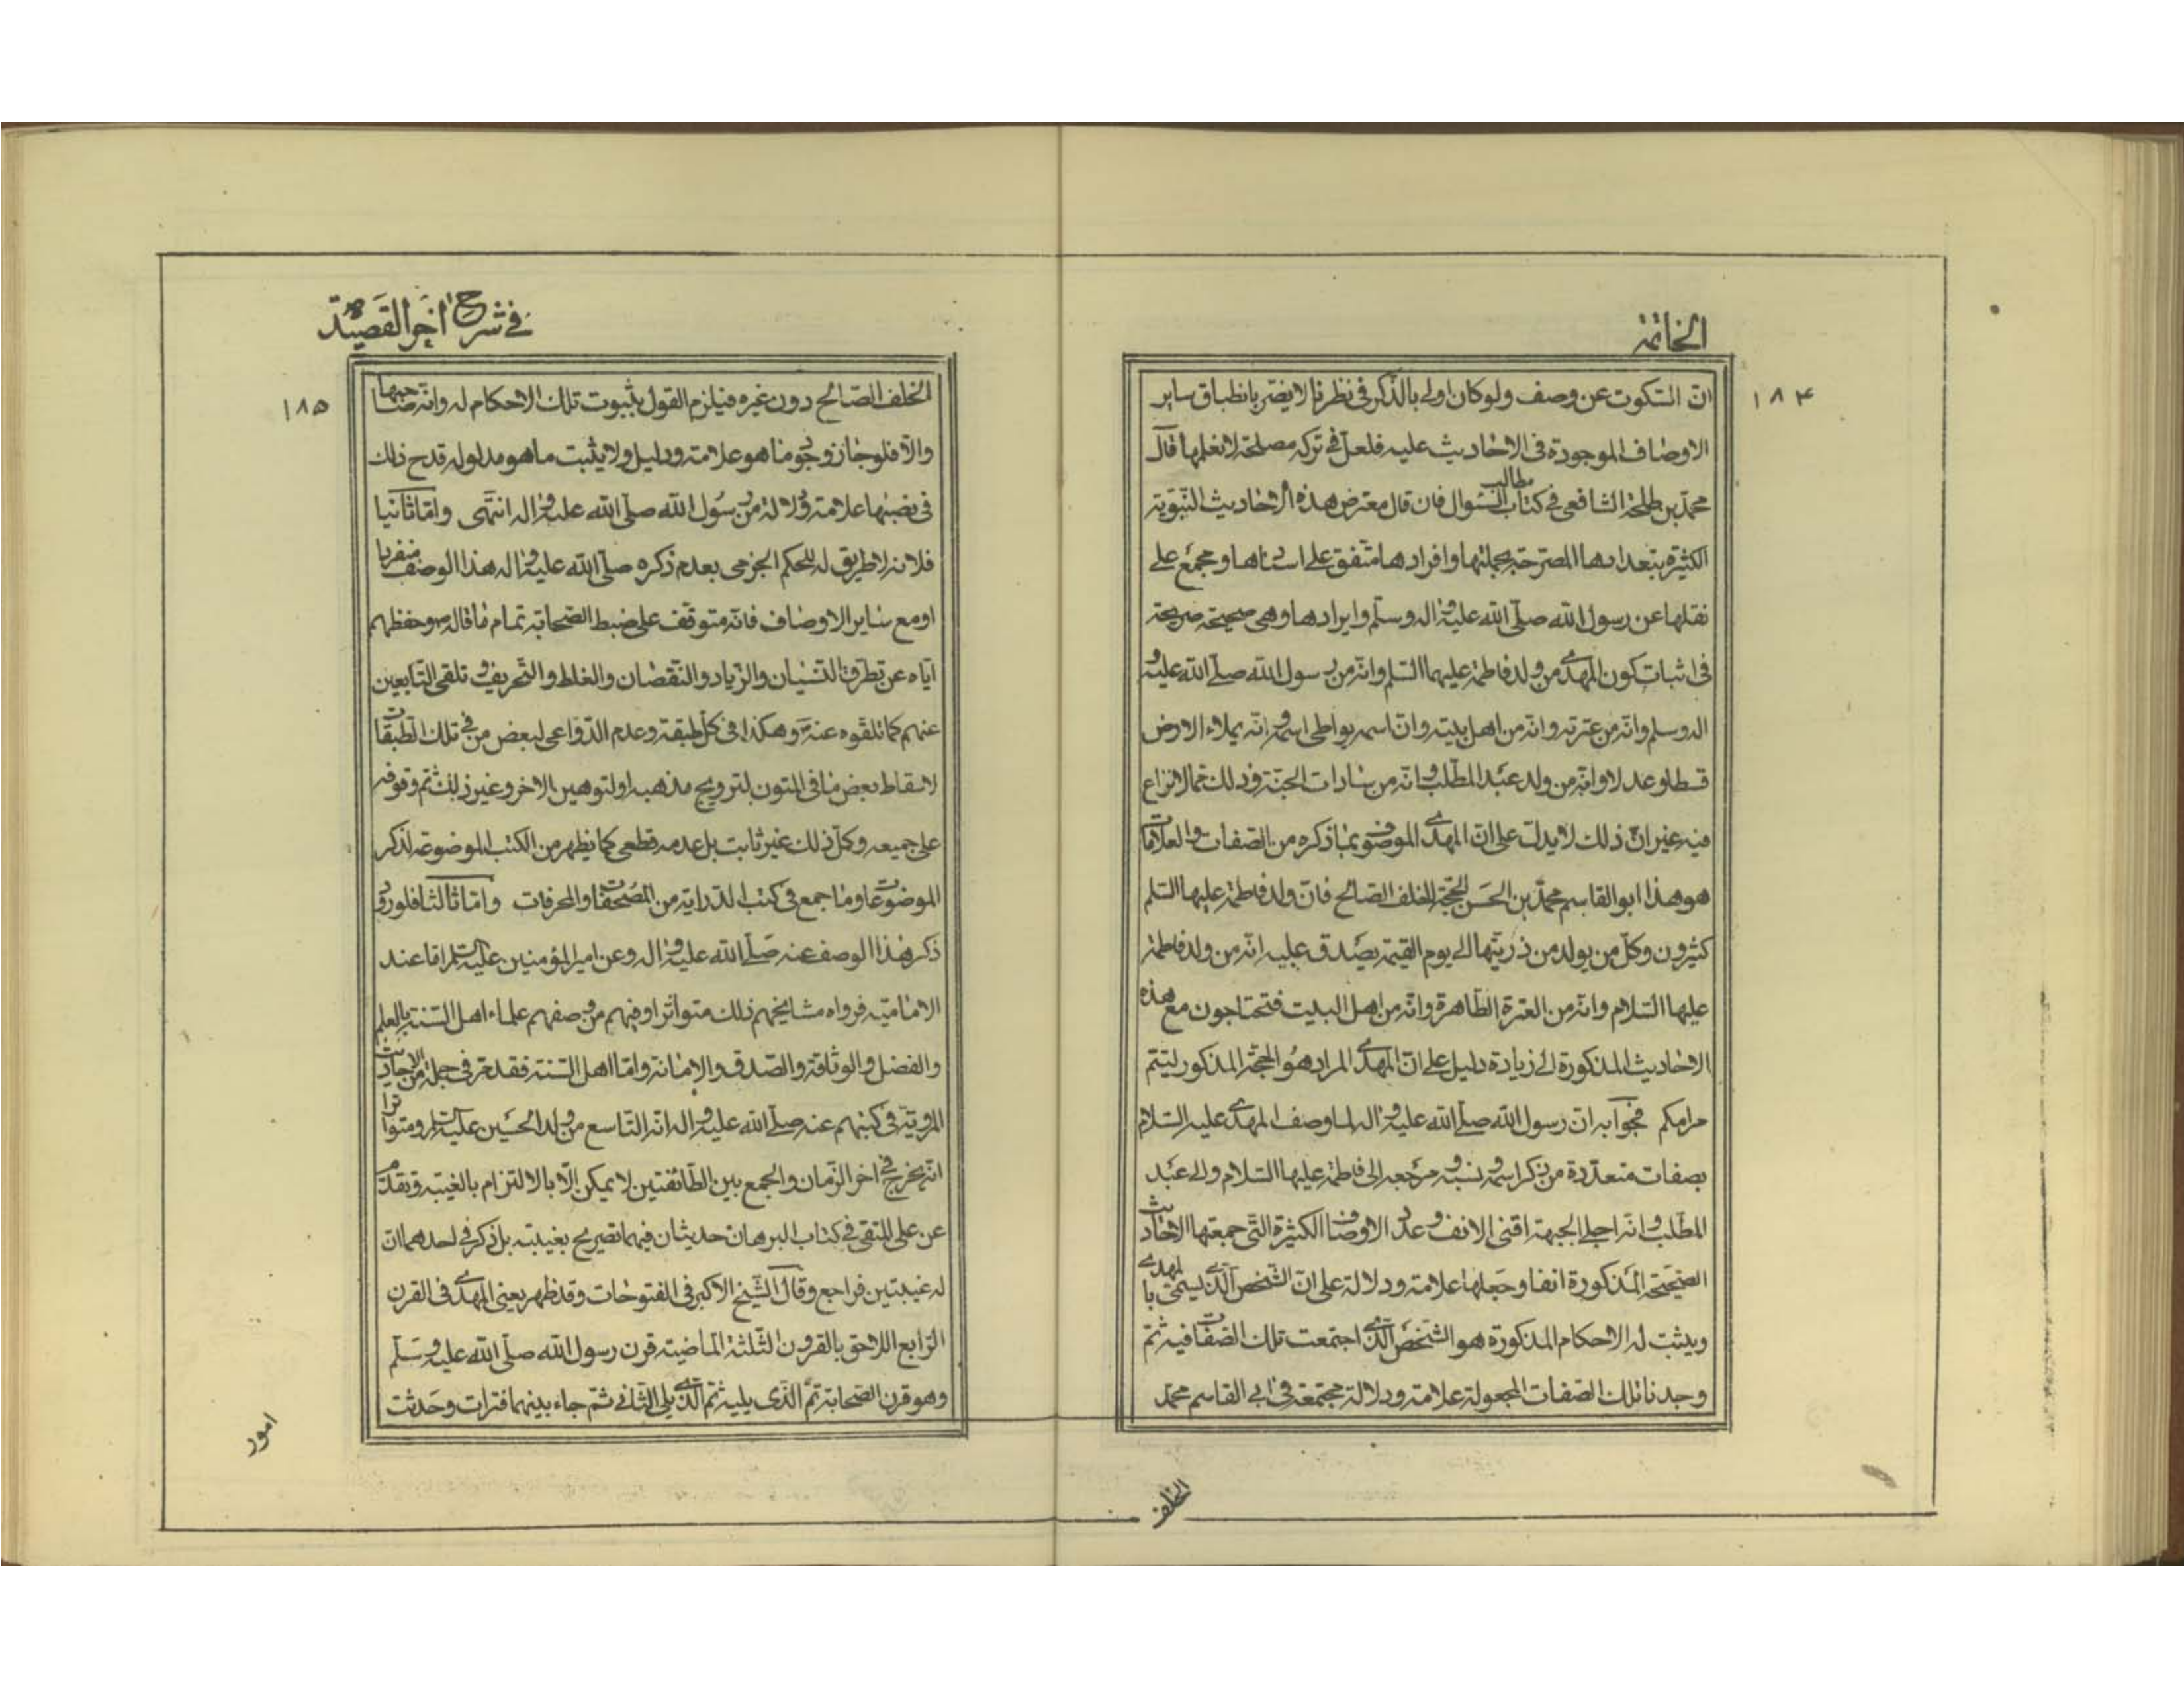 الخاتمة
١٨٤
انّ السّكوت عن وصف ولو كان اولى بالذّكر فى نظرنا لا يضرّ بانطباق ساير
الاوصاف الموجودة فى الاحاديث عليه فلعلّ فى تركه مصلحة لا نعلمها قال
محمّد بن طلحة الشافعى فى كتاب مطالب السّئوال فان قال معترض هذه الاحاديث النّبويّة
الكثيرة بتعدادها المصرّحة بجملتها وافرادها متّفق على اسنادها ومجمع على
نقلها عن رسول الله صلّى الله عليه واله وسلّم وايرادها وهى صحيحة صريحة
فى اثبات كون المهدى من ولد فاطمة عليهما السّلم وانّه من رسول الله صلّى الله عليه و
اله وسلم وانّه من عترته وانّه من اهل بيته وانّ اسمه يواطى اسمه وانّه يملاء الارض
قسطا وعدلا وانّه من ولد عبد المطّلب وانّه من سادات الجنّة وذلك ممّا لا نزاع
فيه غير انّ ذلك لا يدلّ على انّ المهدى الموصوف بما ذكره من الصّفات والعلامات
هو هذا ابو القاسم محمّد بن الحسن الحجّة الخلف الصّالح فانّ ولد فاطمة عليها السّلم
كثيرون وكلّ من يولد من ذريّتها الى يوم القيمة يصدق عليه انّه من ولد فاطمة
عليها السّلام وانّه من العترة الطّاهرة وانّه من اهل البيت فتحتاجون مع هذه
الاحاديث المذكورة الى زيادة دليل على انّ المهدى المراد هو الحجّة المذكور ليتمّ
مرامكم فجوابه ان رسول الله صلّى الله عليه واله لما وصف المهدى عليه السّلام
بصفات متعدّدة من ذكر اسمه ونسبه ومرجعه الى فاطمة عليها السّلام والى عبد
المطّلب وانّه اجلى الجبهة اقنى الانف وعدد الاوصاف الكثيرة الّتى جمعتها الاحاديث
الصّحيحة المذكورة انفا وجعلها علامة ودلالة على انّ الشّخص الّذى يسمّى بالمهدى
ويثبت له الاحكام المذكورة هو الشّخص الّذى اجتمعت تلك الصّفات فيه ثمّ
وجدنا تلك الصّفات المجعولة علامة ودلالة مجتمعة فى ابى القاسم محمّد
الخلف
فى شرح اخر القصيدة
١٨٥
الخلف الصّالح دون غيره فيلزم القول بثبوت تلك الاحكام له وانّه صاحبها
والّا فلو جاز وجود ما هو علامة ودليل ولا يثبت ما هو مدلوله قدح ذلك
فى نصبها علامة ودلالة من رسول الله صلّى الله عليه واله انتهى وامّا ثانيا
فلانه لا طريق له للحكم الجزمى بعدم ذكره صلّى الله عليه واله هذا الوصف منفردا
او مع ساير الاوصاف فانّه متوقّف على ضبط الصّحابة تمام ما قاله ص وحفظهم
ايّاه عن تطرّق النّسيان والزّياد والنّقصان والغلط والتّحريف وتلقى التّابعين
عنهم كما تلقّوه عنه ص وهكذا فى كلّ طبقة وعدم الدّواعى لبعض من فى تلك الطبقات
لاسقاط بعض ما فى المتون لترويج مذهبه او لتوهين الاخر وغير ذلك ثم وقوفه
على جميعه وكلّ ذلك غير ثابت بل عدمه قطعى كما يظهر من الكتب الموضوعة لذكر
الموضوعات وما جمع فى كتب الدّراية من المصحّفات والمحرفات وامّا ثالثا فلورود
ذكر هذا الوصف عنه صلّى الله عليه واله وعن امير المؤمنين عليه السّلم امّا عند
الاماميّة فرواه مشايخهم ذلك متواترا وفيهم من وصفهم علماء اهل السّنة بالعلم
والفضل والوثاقة والصّدق والامانة وامّا اهل السّنة فقد مرّ فى جملة من الاحاديث
المرويّة فى كتبهم عنه صلّى الله عليه واله انّه التّاسع من ولد الحسين عليه السّلم ومتواترا
انّه يخرج فى اخر الزّمان والجمع بين الطّائفتين لا يمكن الّا بالالتزام بالغيبة وتقدّم
عن على المتّقى فى كتاب البرهان حديثان فيهما تصريح بغيبته بل ذكر فى احدهما انّ
له غيبتين فراجع وقال الشّيخ الاكبر فى الفتوحات وقد ظهر يعنى المهدى فى القرن
الرّابع اللاحق بالقرون الثّلثة الماضية قرن رسول الله صلّى الله عليه وسلّم
وهو قرن الصّحابة ثمّ الّذى يليه ثمّ الّذى يلى الثّانى ثمّ جاء بينهما فترات وحدثت
امور